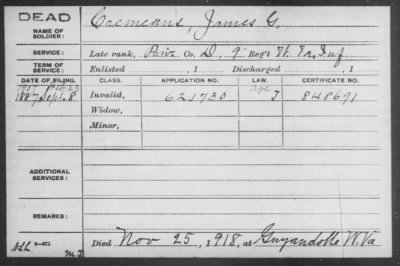 DEAD
NAME OF SOLDIER: Cremeans, James G.
SERVICE: Late rank, Priv Co. D, 9" Reg't W. Va. Inf
TERM OF SERVICE: Enlisted , 1 Discharged , 1
DATE OF FILING. CLASS. APPLICATION NO. LAW. CERTIFICATE NO.
1907 Feb. 23 Age
1887 Sept. 8 Invalid, 621730 J 848691
Widow,
Minor,
ADDITIONAL SERVICES:
REMARKS:
Died Nov 25, 1918, at Guyandotte W. Va